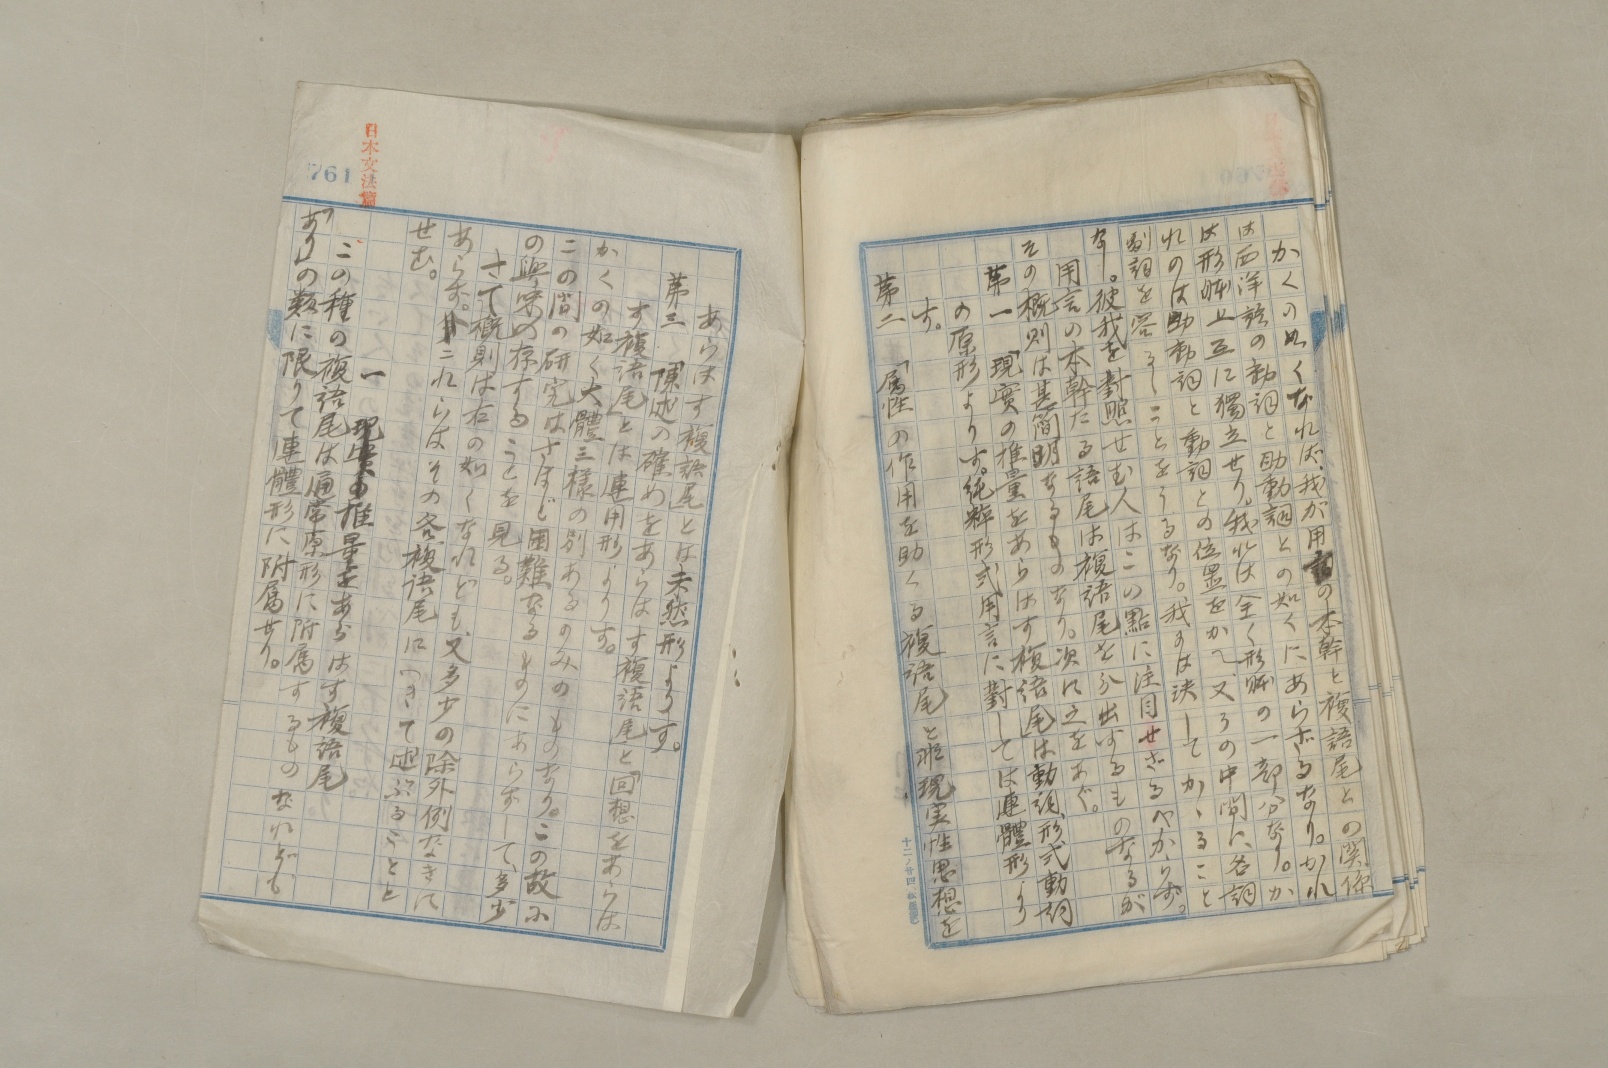 かくのぬくなれば、我が用言の本幹と複語尾との関係
は西洋語の動詞と助動詞との如くにあらざるなり。かれ
は形躰上互に獨立せり。我は全く形躰の一部分なり。か
れのは助動詞と動詞との位置をかへ、又その中間に各詞
副詞を容るゝことをうるなり。我のは決してかゝること
なし。彼我を對照せむ人はこの點に注目せざるべからず。
用言の本幹たる語尾は複語尾を分出するものなるが
その概則は甚簡明なるものなり。次に之をあぐ。
第一 「現實の推量をあらはす複語尾」は動詞、形式動詞
の原形よりす。純粹形式用言に對しては連體形より
す。
第二 「属性の作用を助くる複語尾」と非現実性思想を
日本文法論
761
あらはす複語尾とは未然形よりす。
第三 「陳述の確めをあらはす複語尾」と「回想をあらは
す複語尾」とは連用形よりす。
かくの如く大體三樣の別あるのみのものなり。この故に
この間の研究はさほど困難なるものにあらずして、多少
の興味の存することを見る。
さて概則は右の如くなれども、又多少の除外例なきに
あらず。これらはその各複語尾につきて述ぶることと
せむ。
一 現實の推量をあらはす複語尾
この種の複語尾は通常原形に附属するものなれども
「あり」の類に限りて連體形に附属せり。